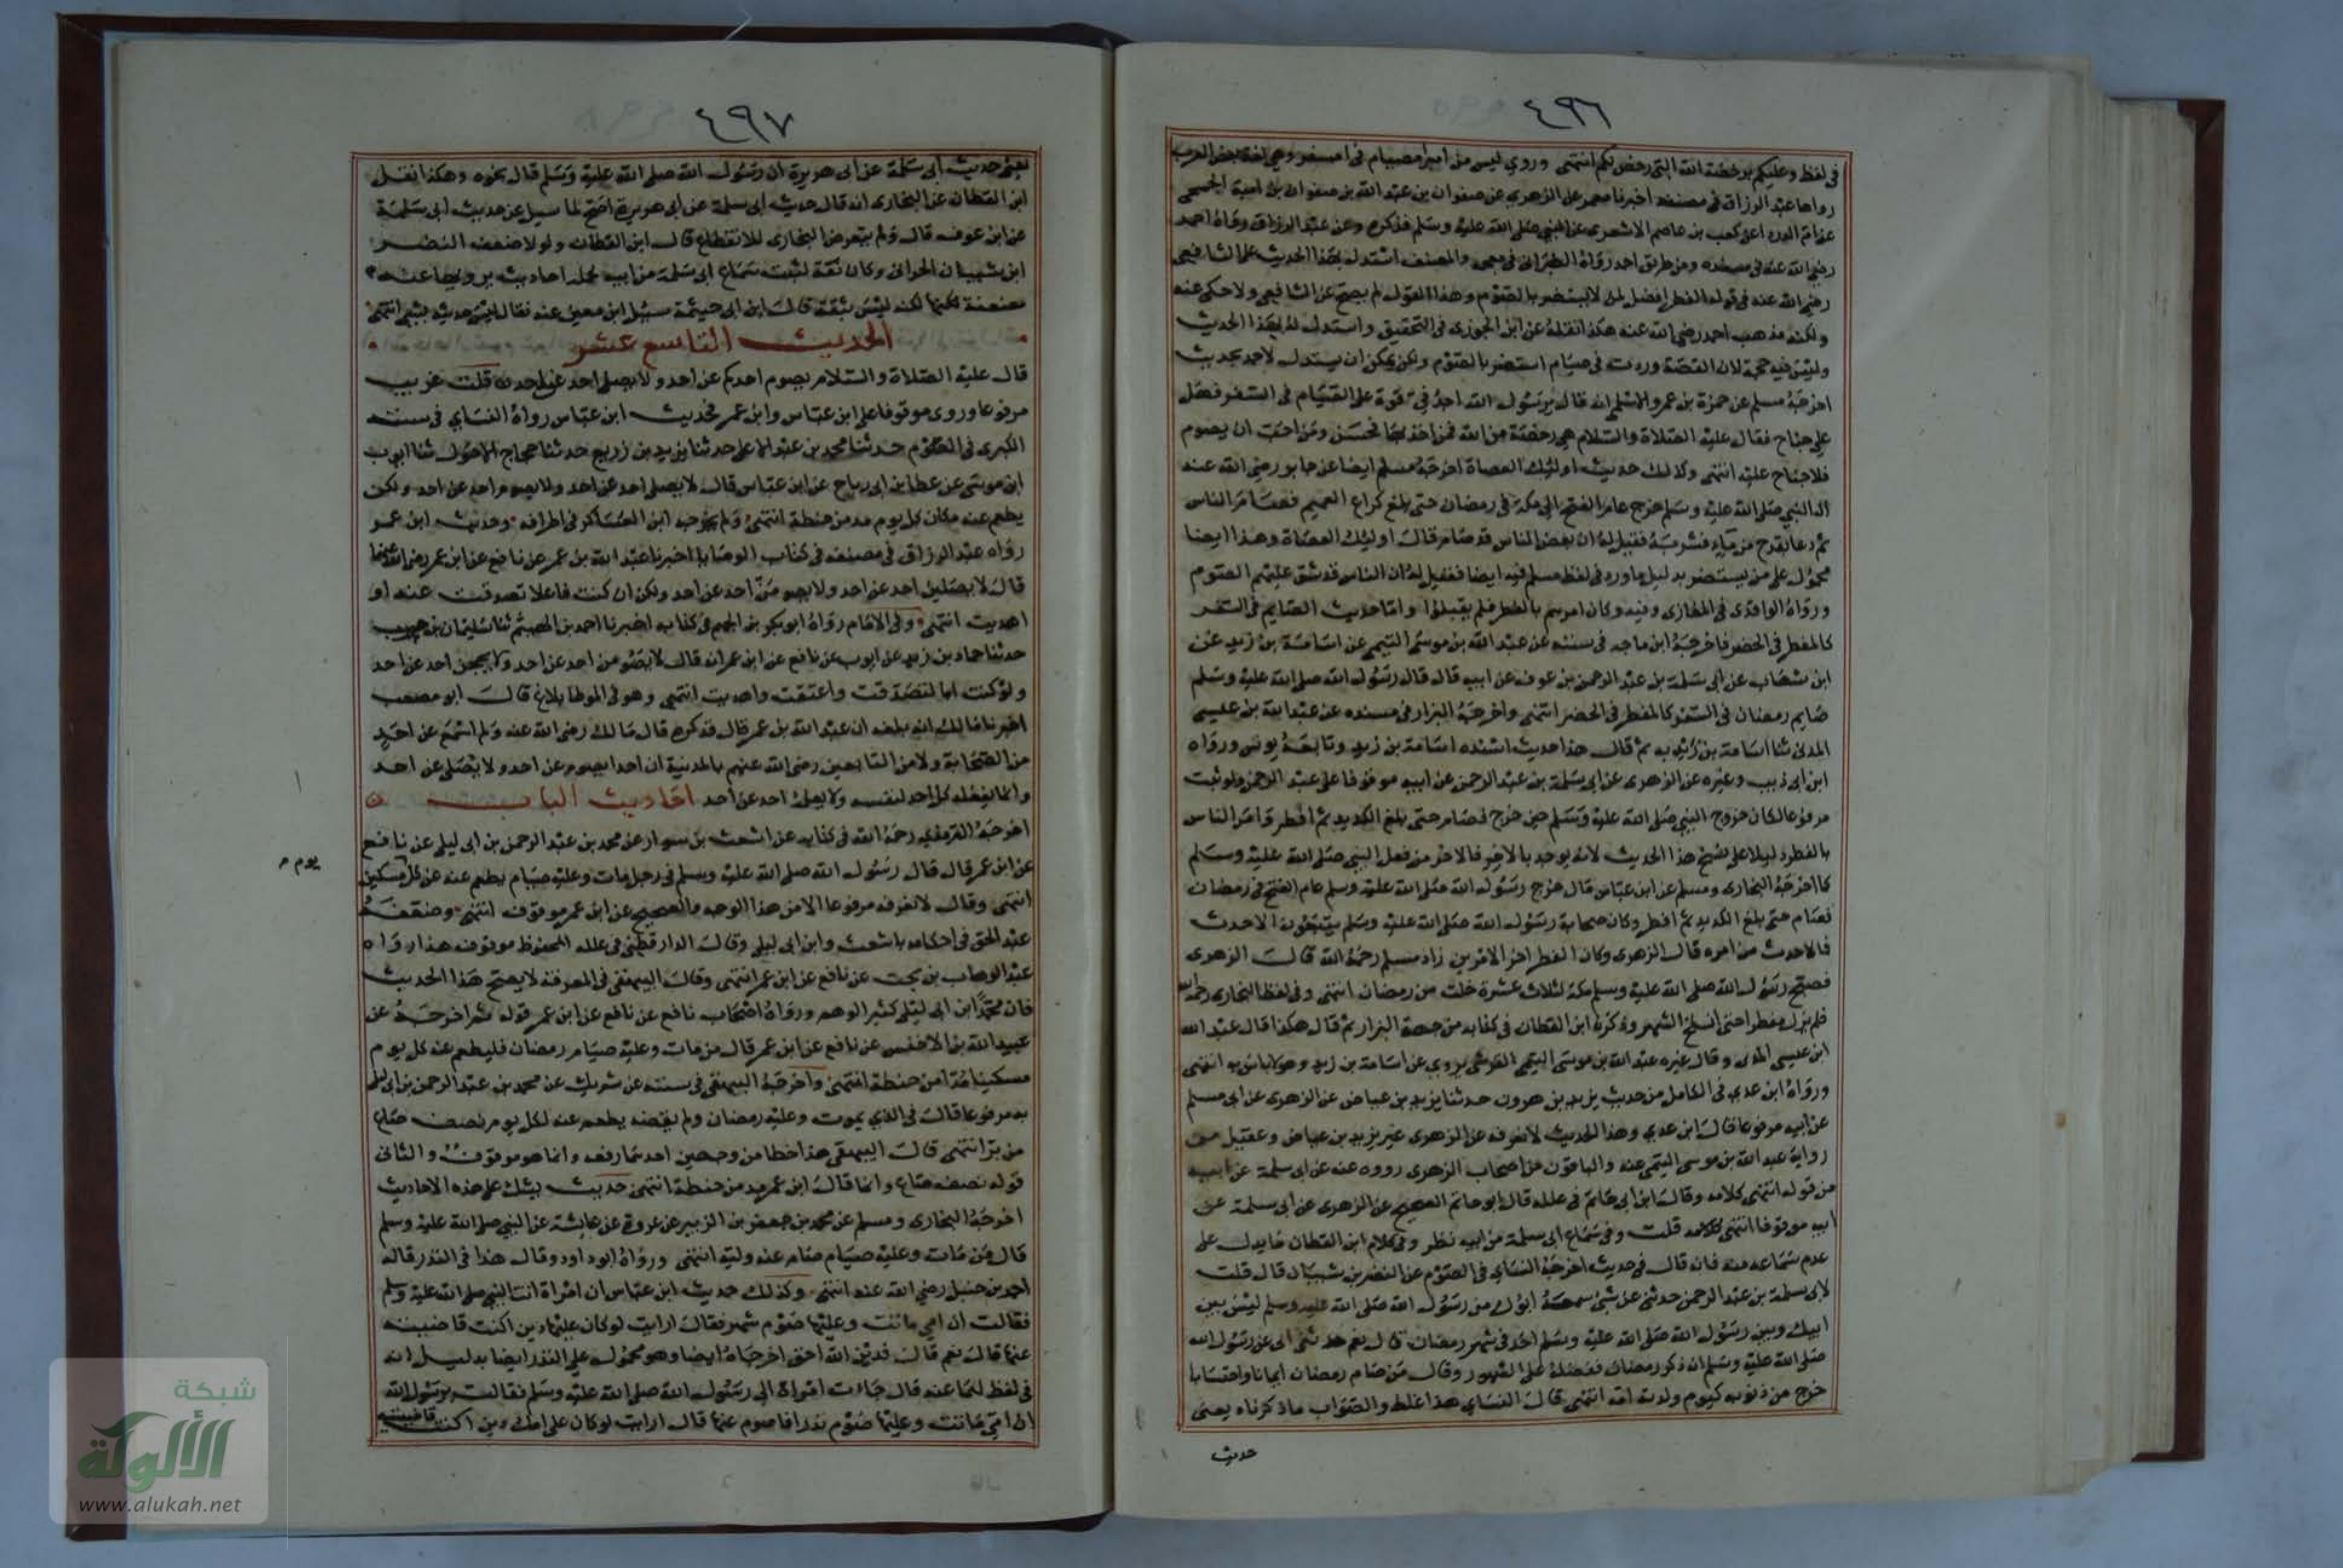 ٤٩٦
في لفظ وعليكم برخصة الله التي رخص لكم انتهى وروي ليس من امبر امصيام في امسفر وهي لغة بعض العرب
رواها عبد الرزاق في مصنفه اخبرنا معمر عن الزهري عن صفوان بن عبد الله بن صفوان بن امية الجمحي
عن ام الدردا عن كعب بن عاصم الاشعري عن النبي صلى الله عليه وسلم فذكره وعن عبد الرزاق رواه احمد
رضي الله عنه في مسنده ومن طريق احمد رواه الطبراني في معجمه والمصنف استدل بهذا الحديث على الشافعي
رضي الله عنه في قوله الفطر افضل لمن لا يستضر بالصوم وهذا القول لم يصح عن الشافعي ولا حكي عنه
ولكنه مذهب احمد رضي الله عنه هكذا نقله عن ابن الجوزي في التحقيق واستدل له بهذا الحديث
وليس فيه حجة لان القصة وردت في صيام استضر بالصوم ولكن يمكن ان يستدل لاحمد بحديث
اخرجه مسلم عن حمزة بن عمرو الاسلمي انه قال يرسول الله اجد في قوة على الصيام في السفر فهل
علي جناح فقال عليه الصلاة والسلام هي رخصة من الله فمن اخذ بها فحسن ومن احب ان يصوم
فلا جناح عليه انتهى وكذلك حديث اوليك العصاة اخرجه مسلم ايضا عن جابر رضي الله عنه
ان النبي صلى الله عليه وسلم خرج عام الفتح الى مكة في رمضان حتى بلغ كراع الغميم فصام الناس
ثم دعا بقدح من ماء فشربه فقيل له ان بعض الناس قد صام قال اوليك العصاة وهذا ايضا
محمول على من يستضر بدليل ما ورد في لفظ مسلم فيه ايضا فقيل له ان الناس قد شق عليهم الصوم
ورواه الواقدي في المغازي وفيه وكان امرهم بالفطر فلم يقبلوا واما حديث الصايم في السفر
كالمفطر في الحضر فاخرجه ابن ماجه في سننه عن عبد الله بن موسى التيمي عن اسامة بن زيد عن
ابن شهاب عن ابي سلمة بن عبد الرحمن بن عوف عن ابيه قال قال رسول الله صلى الله عليه وسلم
صايم رمضان في السفر كالمفطر في الحضر انتهى واخرجه البزار في مسنده عن عبد الله بن عيسى
المدني ثنا اسامة بن زيد به ثم قال هذا حديث اسنده اسامة بن زيد وتابعه يونس ورواه
ابن ابي ذيب وغيره عن الزهري عن ابي سلمة بن عبد الرحمن عن ابيه موقوفا على عبد الرحمن ولو ثبت
مرفوعا لكان خروج النبي صلى الله عليه وسلم حين خرج فصام حتى بلغ الكديد ثم افطر وامر الناس
بالفطر دليلا على نسخ هذا الحديث لانه يوخذ بالاخر فالاخر من فعل النبي صلى الله عليه وسلم
كما اخرجه البخاري ومسلم عن ابن عباس قال خرج رسول الله صلى الله عليه وسلم عام الفتح في رمضان
فصام حتى بلغ الكديد ثم افطر وكان صحابة رسول الله صلى الله عليه وسلم يتبعون الاحدث
فالاحدث من امره قال الزهري وكان الفطر اخر الامرين زاد مسلم رحمه الله قال الزهري
فصبح رسول الله صلى الله عليه وسلم مكة لثلاث عشرة خلت من رمضان انتهى وفي لفظ البخاري رحمه الله
فلم يزل مفطرا حتى انسلخ الشهر وذكره ابن القطان في كتابه من جهة البزار ثم قال هكذا قال عبد الله
ابن عيسى المدني وقال غيره عبد الله بن موسى التيمي القرشي يروي عن اسامة بن زيد وهو لا باس به انتهى
ورواه ابن عدي في الكامل من حديث يزيد بن هرون حدثنا يزيد بن عياض عن الزهري عن ابي مسلم
عن ابيه مرفوعا قال ابن عدي وهذا الحديث لا نعرفه عن الزهري غير يزيد بن عياض وعقيل من
رواية عبد الله بن موسى التيمي عنه والباقون من اصحاب الزهري رووه عنه عن ابي سلمة عن ابيه
من قوله انتهى كلامه وقال ابن ابي حاتم في علله قال ابو حاتم الصحيح عن الزهري عن ابي سلمة عن
ابيه موقوفا انتهى كلامه قلت وفي سماع ابي سلمة من ابيه نظر وفي كلام ابن القطان ما يدل على
عدم سماعه منه فانه قال في حديث اخرجه النساي في الصوم عن النضر بن شيبان قال قلت
لابي سلمة بن عبد الرحمن حدثني عن شي سمعه ابوك من رسول الله صلى الله عليه وسلم ليس بين
ابيك وبين رسول الله صلى الله عليه وسلم احد في شهر رمضان قال نعم حدثني ابي عن رسول الله
صلى الله عليه وسلم انه ذكر رمضان ففضله على الشهور وقال من صام رمضان ايمانا واحتسابا
خرج من ذنوبه كيوم ولدته امه انتهى قال النساي هذا غلط والصواب ما ذكرناه يعني
حديث
٤٩٧
يعني حديث ابي سلمة عن ابي هريرة ان رسول الله صلى الله عليه وسلم قال نحوه وهكذا نقل
ابن القطان عن البخاري انه قال حديث ابي سلمة عن ابي هريرة اصح لما سيل عن حديث ابي سلمة
عن ابن عوف قال ولم يتعرض البخاري للانقطاع قال ابن القطان ولولا ضعف النضر
ابن شيبان الحداني وكان ثقة لثبت سماع ابي سلمة من ابيه لجملة احاديث يرويها عنه
معنعنة لكنه ليس بثقة قال ابن ابي خيثمة سيل ابن معين عنه فقال ليس حديثه بشي انتهى
الحديث التاسع عشر
قال عليه الصلاة والسلام يصوم احدكم عن احد ولا يصلي احد عن احد قلت غريب
مرفوعا وروي موقوفا على ابن عباس وابن عمر فحديث ابن عباس رواه النساي في سننه
الكبرى في الصوم حدثنا محمد بن عبد الاعلى حدثنا يزيد بن زريع حدثنا حجاج الاحول ثنا ايوب
ابن موسى عن عطا بن ابي رباح عن ابن عباس قال لا يصلي احد عن احد ولا يصوم احد عن احد ولكن
يطعم عنه مكان كل يوم مد من حنطة انتهى ولم يخرجه ابن العساكر في اطرافه وحديث ابن عمر
رواه عبد الرزاق في مصنفه في كتاب الوصايا اخبرنا عبد الله بن عمر عن نافع عن ابن عمر رضي الله عنهما
قال لا يصلين احد عن احد ولا يصومن احد عن احد ولكن ان كنت فاعلا تصدقت عنه او
اهديت انتهى وفي الامام رواه ابو بكر بن الجهم في كتابه اخبرنا احمد بن الهيثم ثنا سليمان بن حرب
حدثنا حماد بن زيد عن ايوب عن نافع عن ابن عمر انه قال لا يصومن احد عن احد ولا يحجن احد عن احد
ولو كنت انا لتصدقت واعتقت واهديت انتهى وهو في الموطا بلاغ قال ابو مصعب
اخبرنا مالك انه بلغه ان عبد الله بن عمر قال فذكره قال مالك رضي الله عنه ولم اسمع عن احد
من الصحابة ولا من التابعين رضي الله عنهم بالمدينة ان احدا يصوم عن احد ولا يصلي عن احد
وانما يفعله كل احد لنفسه ولا يعمله احد عن احد احاديث الباب
اخرجه الترمذي رحمه الله في كتابه عن اشعث بن سوار عن محمد بن عبد الرحمن بن ابي ليلى عن نافع
عن ابن عمر قال قال رسول الله صلى الله عليه وسلم في رجل مات وعليه صيام يطعم عنه عن كل مسكين
يوم م
انتهى وقال لا نعرفه مرفوعا الا من هذا الوجه والصحيح عن ابن عمر موقوف انتهى وضعفه
عبد الحق في احكامه باشعث وابن ابي ليلى وقال الدارقطني في علله المحفوظ موقوف هذا رواه
عبد الوهاب بن بخت عن نافع عن ابن عمر انتهى وقال البيهقي في المعرفة لا يصح هذا الحديث
فان محمد ابن ابي ليلى كثير الوهم ورواه اصحاب نافع عن نافع عن ابن عمر قوله ثم اخرجه عن
عبيد الله بن الاخنس عن نافع عن ابن عمر قال من مات وعليه صيام رمضان فليطعم عنه كل يوم
مسكينا مدا من حنطة انتهى واخرجه البيهقي في سننه عن شريك عن محمد بن عبد الرحمن بن ابي ليلى
به مرفوعا قال في الذي يموت وعليه رمضان ولم يقضه يطعم عنه لكل يوم نصف صاع
من بر انتهى قال البيهقي هذا خطا من وجهين احدهما رفعه وانما هو موقوف والثاني
قوله نصف صاع وانما قال ابن عمر مد من حنطة انتهى حديث يشكل على هذه الاحاديث
اخرجه البخاري ومسلم عن محمد بن جعفر بن الزبير عن عروة عن عايشة عن النبي صلى الله عليه وسلم
قال من مات وعليه صيام صام عنه وليه انتهى ورواه ابو داود وقال هذا في النذر قاله
احمد بن حنبل رضي الله عنه انتهى وكذلك حديث ابن عباس ان امراة اتت النبي صلى الله عليه وسلم
فقالت ان امي ماتت وعليها صوم شهر فقال ارايت لو كان عليها دين اكنت قاضيته
عنها قالت نعم قال فدين الله احق اخرجاه ايضا وهو محمول على النذر ايضا بدليل انه
في لفظ لهما عنه قال جاءت امراة الى رسول الله صلى الله عليه وسلم فقالت يرسول الله
ان امي ماتت وعليها صوم نذر افاصوم عنها قال ارايت لو كان على امك دين اكنت قاضيته
شبكة
الألوكة
www.alukah.net